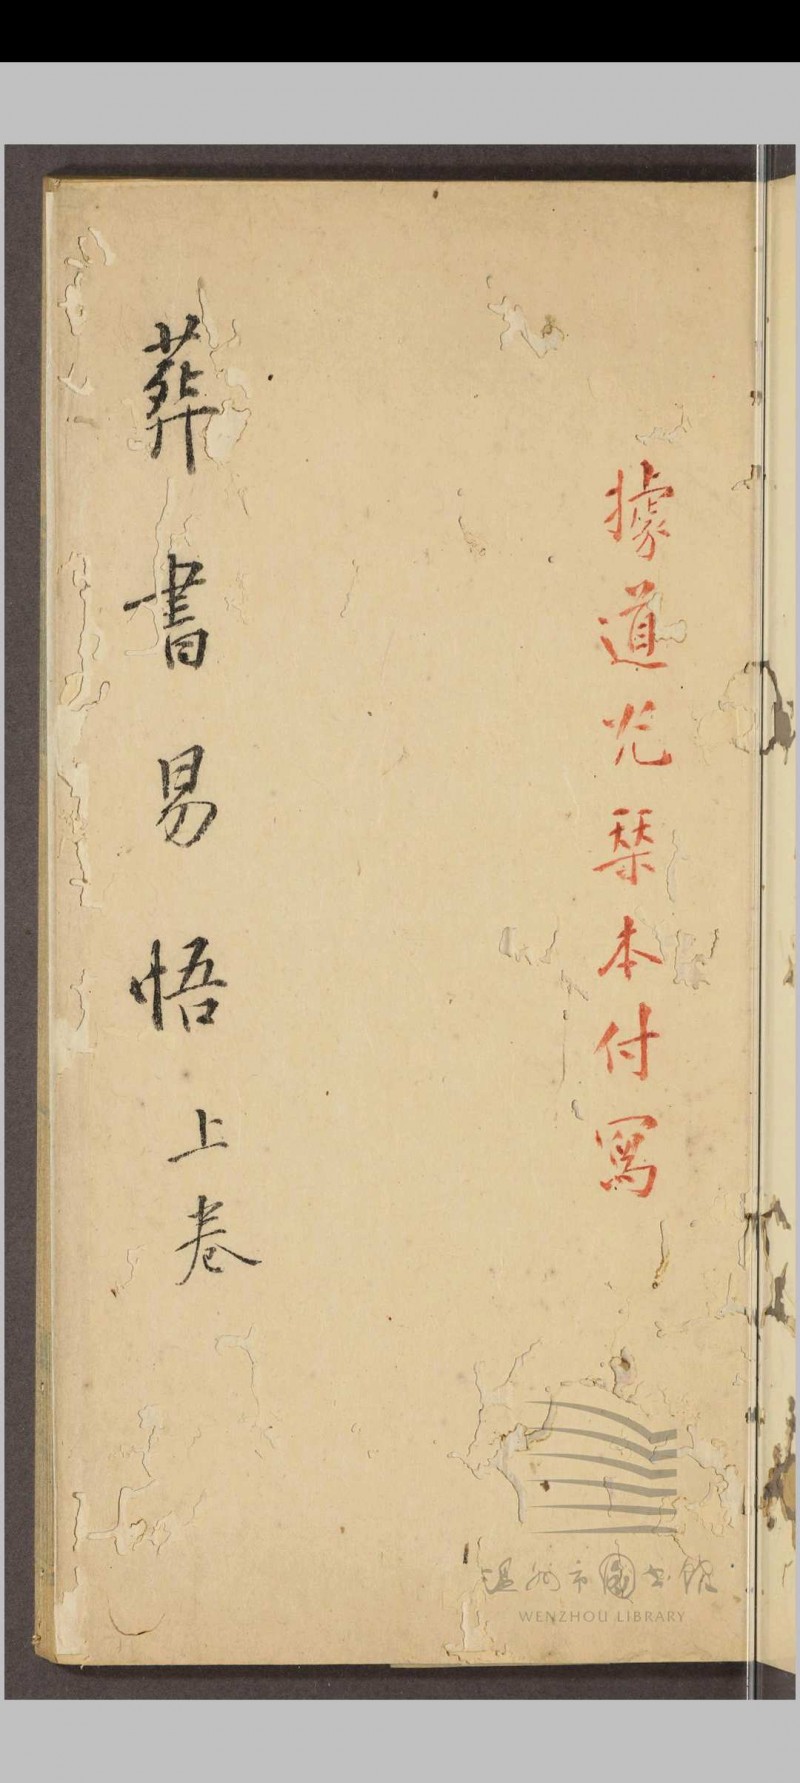 據道光琹本付寫
葬書易悟上卷
温州市圖书馆
WENZHOU LIBRARY